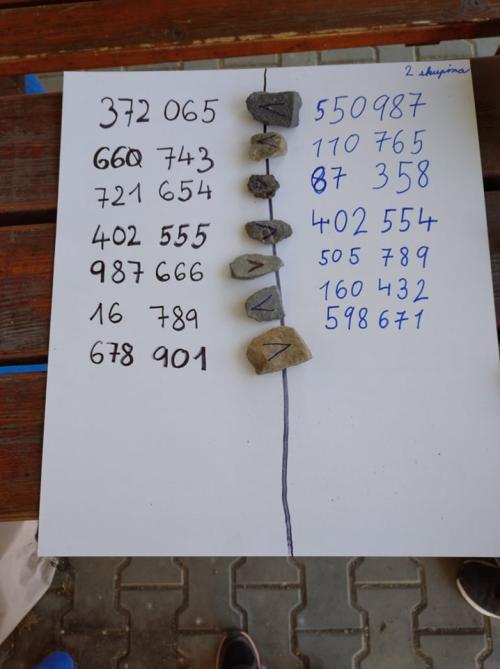 2 skupina
372 065 < 550 987
660 743 > 110 765
721 654 > 87 358
402 555 > 402 554
987 666 > 505 789
16 789 < 160 432
678 901 > 598 671